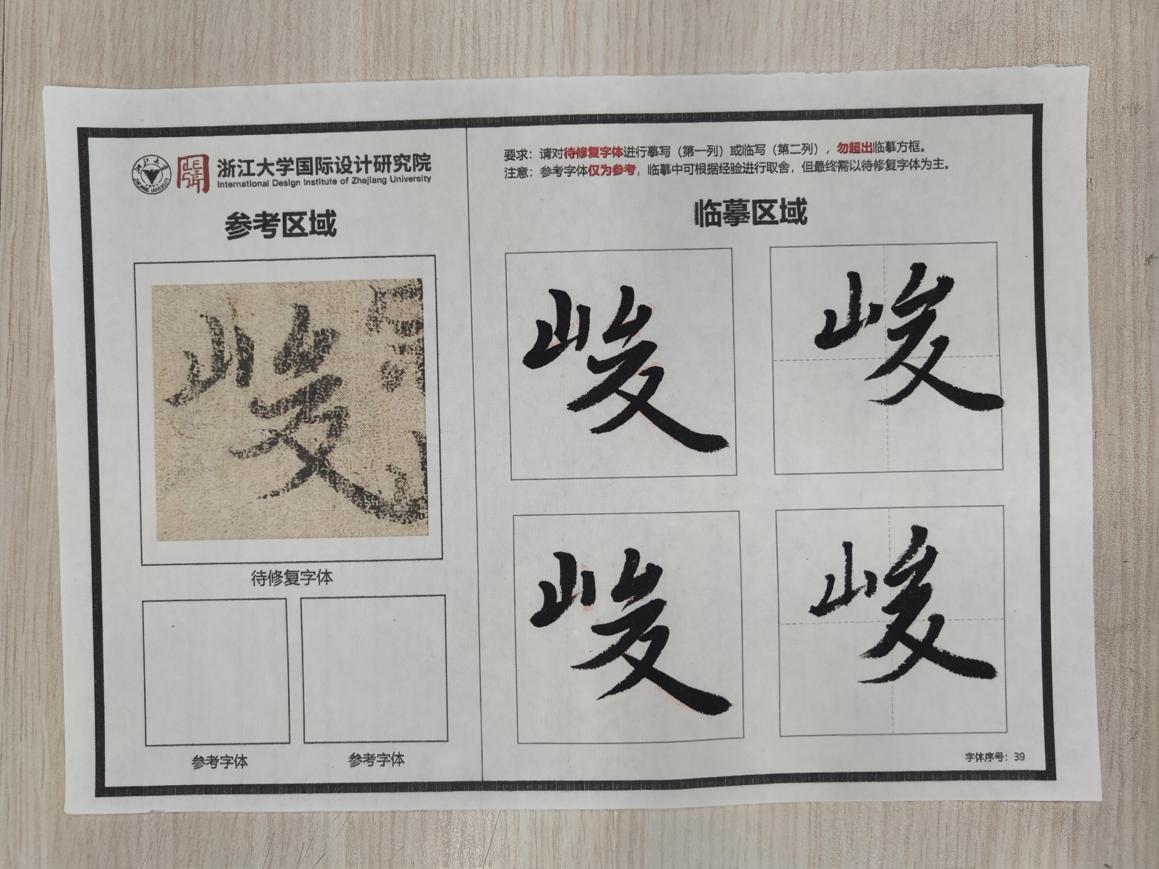 浙江大学国际设计研究院
International Design Institute of Zhejiang University
参考区域
峻
待修复字体
参考字体
参考字体
要求：请对待修复字体进行摹写（第一列）或临写（第二列），勿超出临摹方框。
注意：参考字体仅为参考，临摹中可根据经验进行取舍，但最终需以待修复字体为主。
临摹区域
峻 峻
峻 峻
字体序号：39